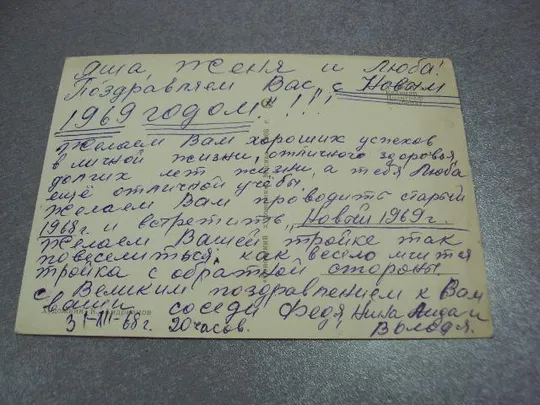 Яша, Женя и Люба!
Поздравляем Вас с Новым
1969 годом!!!!
Желаем Вам хороших успехов
в личной жизни, отличного здоровья,
долгих лет жизни, а тебя Люба
ещё отличной учебы.
Желаем Вам проводить старый
1968г. и встретить Новый 1969г.
Желаем Вашей тройке так
повеселиться, как весело мчится
тройка с обратной стороны
с Великим поздравлением к Вам
ваши соседи Федя, Нина Аида и
Володя.
31-XII-68г. 20 часов.